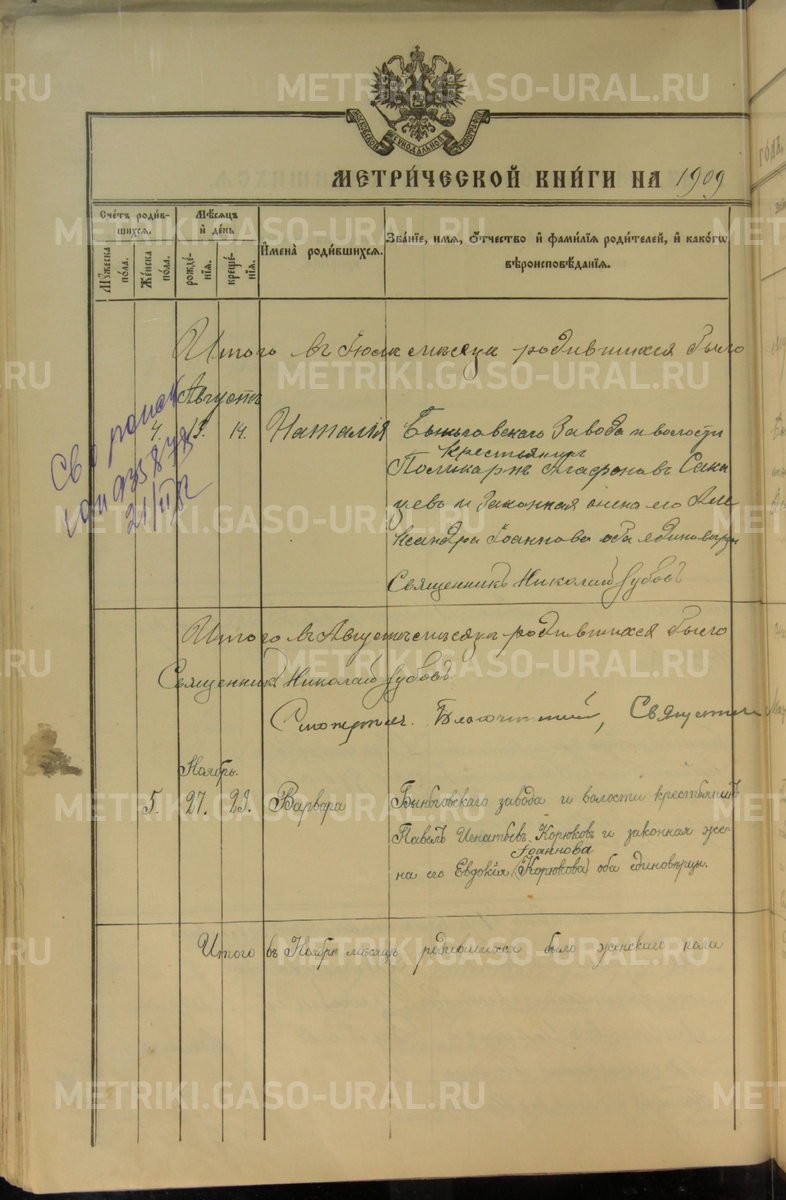 METRIKI.GASO-URAL.RU
МОСКОВСКОЙ СѴНОДАЛЬНОЙ ТИПОГРАФІИ
МЕТРИ́ЧЕСКОЙ КНИ́ГИ НА 1909
Сче́тъ роди́в-
шихсѧ.
Мꙋ́жеска по́ла.
Же́нска по́ла.
Мѣ́сѧцъ
и҆ де́нь
рожде́-
нїѧ.
креще́-
нїѧ.
И҆мена̀ роди́вшихсѧ.
Зва́нїе, и҆́мѧ, ѻ҆́тчество и҆ фами́лїѧ роди́телей, и҆ како́гѡ
вѣроисповѣ́данїѧ.
Итого въ Іюлѣ мѣсяцѣ родившихся было
Августъ
4. 13. 14. Наталія Быньговскаго Завода и волости
крестьянинъ
Поликарпъ Агафоновъ
и законная жена его Але
ксандра Іоаннова оба единовѣрцы
Священникъ Николай Зубовъ
Итого въ Августѣ мѣсяцѣ родившихся было
Священникъ Николай Зубовъ
Благочинный, Священникъ
Ноябрь.
5. 27. 29. Варвара Быньговскаго завода и волости крестьянинъ
Павелъ Игнатьевъ Корюковъ и законная же-
Іоаннова
на его Евдокія (Корюкова) оба единовѣрцы.
Итого въ Ноябрѣ мѣсяцѣ родившихся было женскаго пола
21/II 82
ГОДЪ,